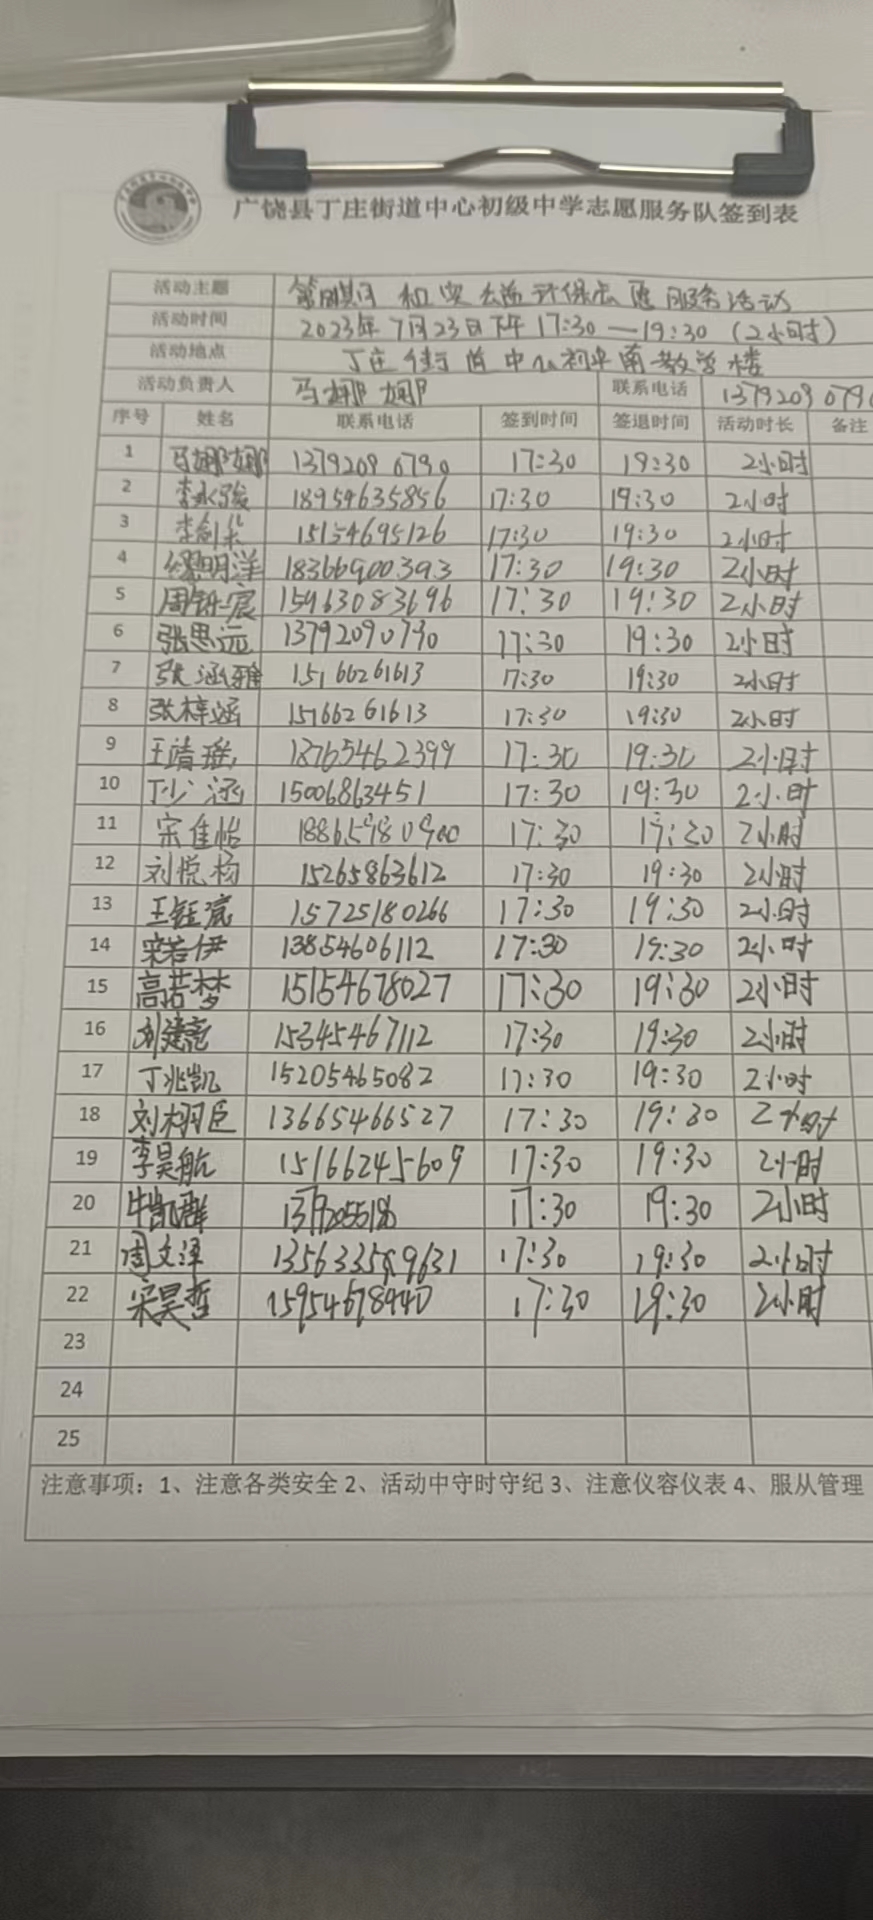 广饶县丁庄街道中心初级中学志愿服务队签到表
活动主题 第 期 和 公益环保志愿服务活动
活动时间 2023年7月23日下午17:30—19:30(2小时)
活动地点 丁庄街道中心初中南教学楼
活动负责人 马娜娜 联系电话 1379209079
序号 姓名 联系电话 签到时间 签退时间 活动时长 备注
1 马娜娜 13792090790 17:30 19:30 2小时
2 李永骏 18954635856 17:30 19:30 2小时
3 李剑 15154695126 17:30 19:30 2小时
4 明洋 18366900393 17:30 19:30 2小时
5 周 宸 15963083696 17:30 19:30 2小时
6 张思远 13792090790 17:30 19:30 2小时
7 张涵雅 15166261613 17:30 19:30 2小时
8 张梓涵 15166261613 17:30 19:30 2小时
9 王靖瑶 18765462399 17:30 19:30 2小时
10 丁少涵 15006863451 17:30 19:30 2小时
11 宋佳怡 17:30 2小时
12 刘悦杨 15265863612 17:30 19:30 2小时
13 王钰 15725180266 17:30 19:30 2小时
14 宋若伊 13854606112 17:30 19:30 2小时
15 高若梦 15154678027 17:30 19:30 2小时
16 刘建亮 15345467112 17:30 19:30 2小时
17 丁兆凯 15205465082 17:30 19:30 2小时
18 刘栩臣 13665466527 17:30 19:30 2小时
19 李昊航 15166245609 17:30 19:30 2小时
20 牛凯群 17:30 19:30 2小时
21 周文泽 17:30 19:30 2小时
22 宋昊哲 15954678940 17:30 19:30 2小时
23
24
25
注意事项：1、注意各类安全 2、活动中守时守纪 3、注意仪容仪表 4、服从管理